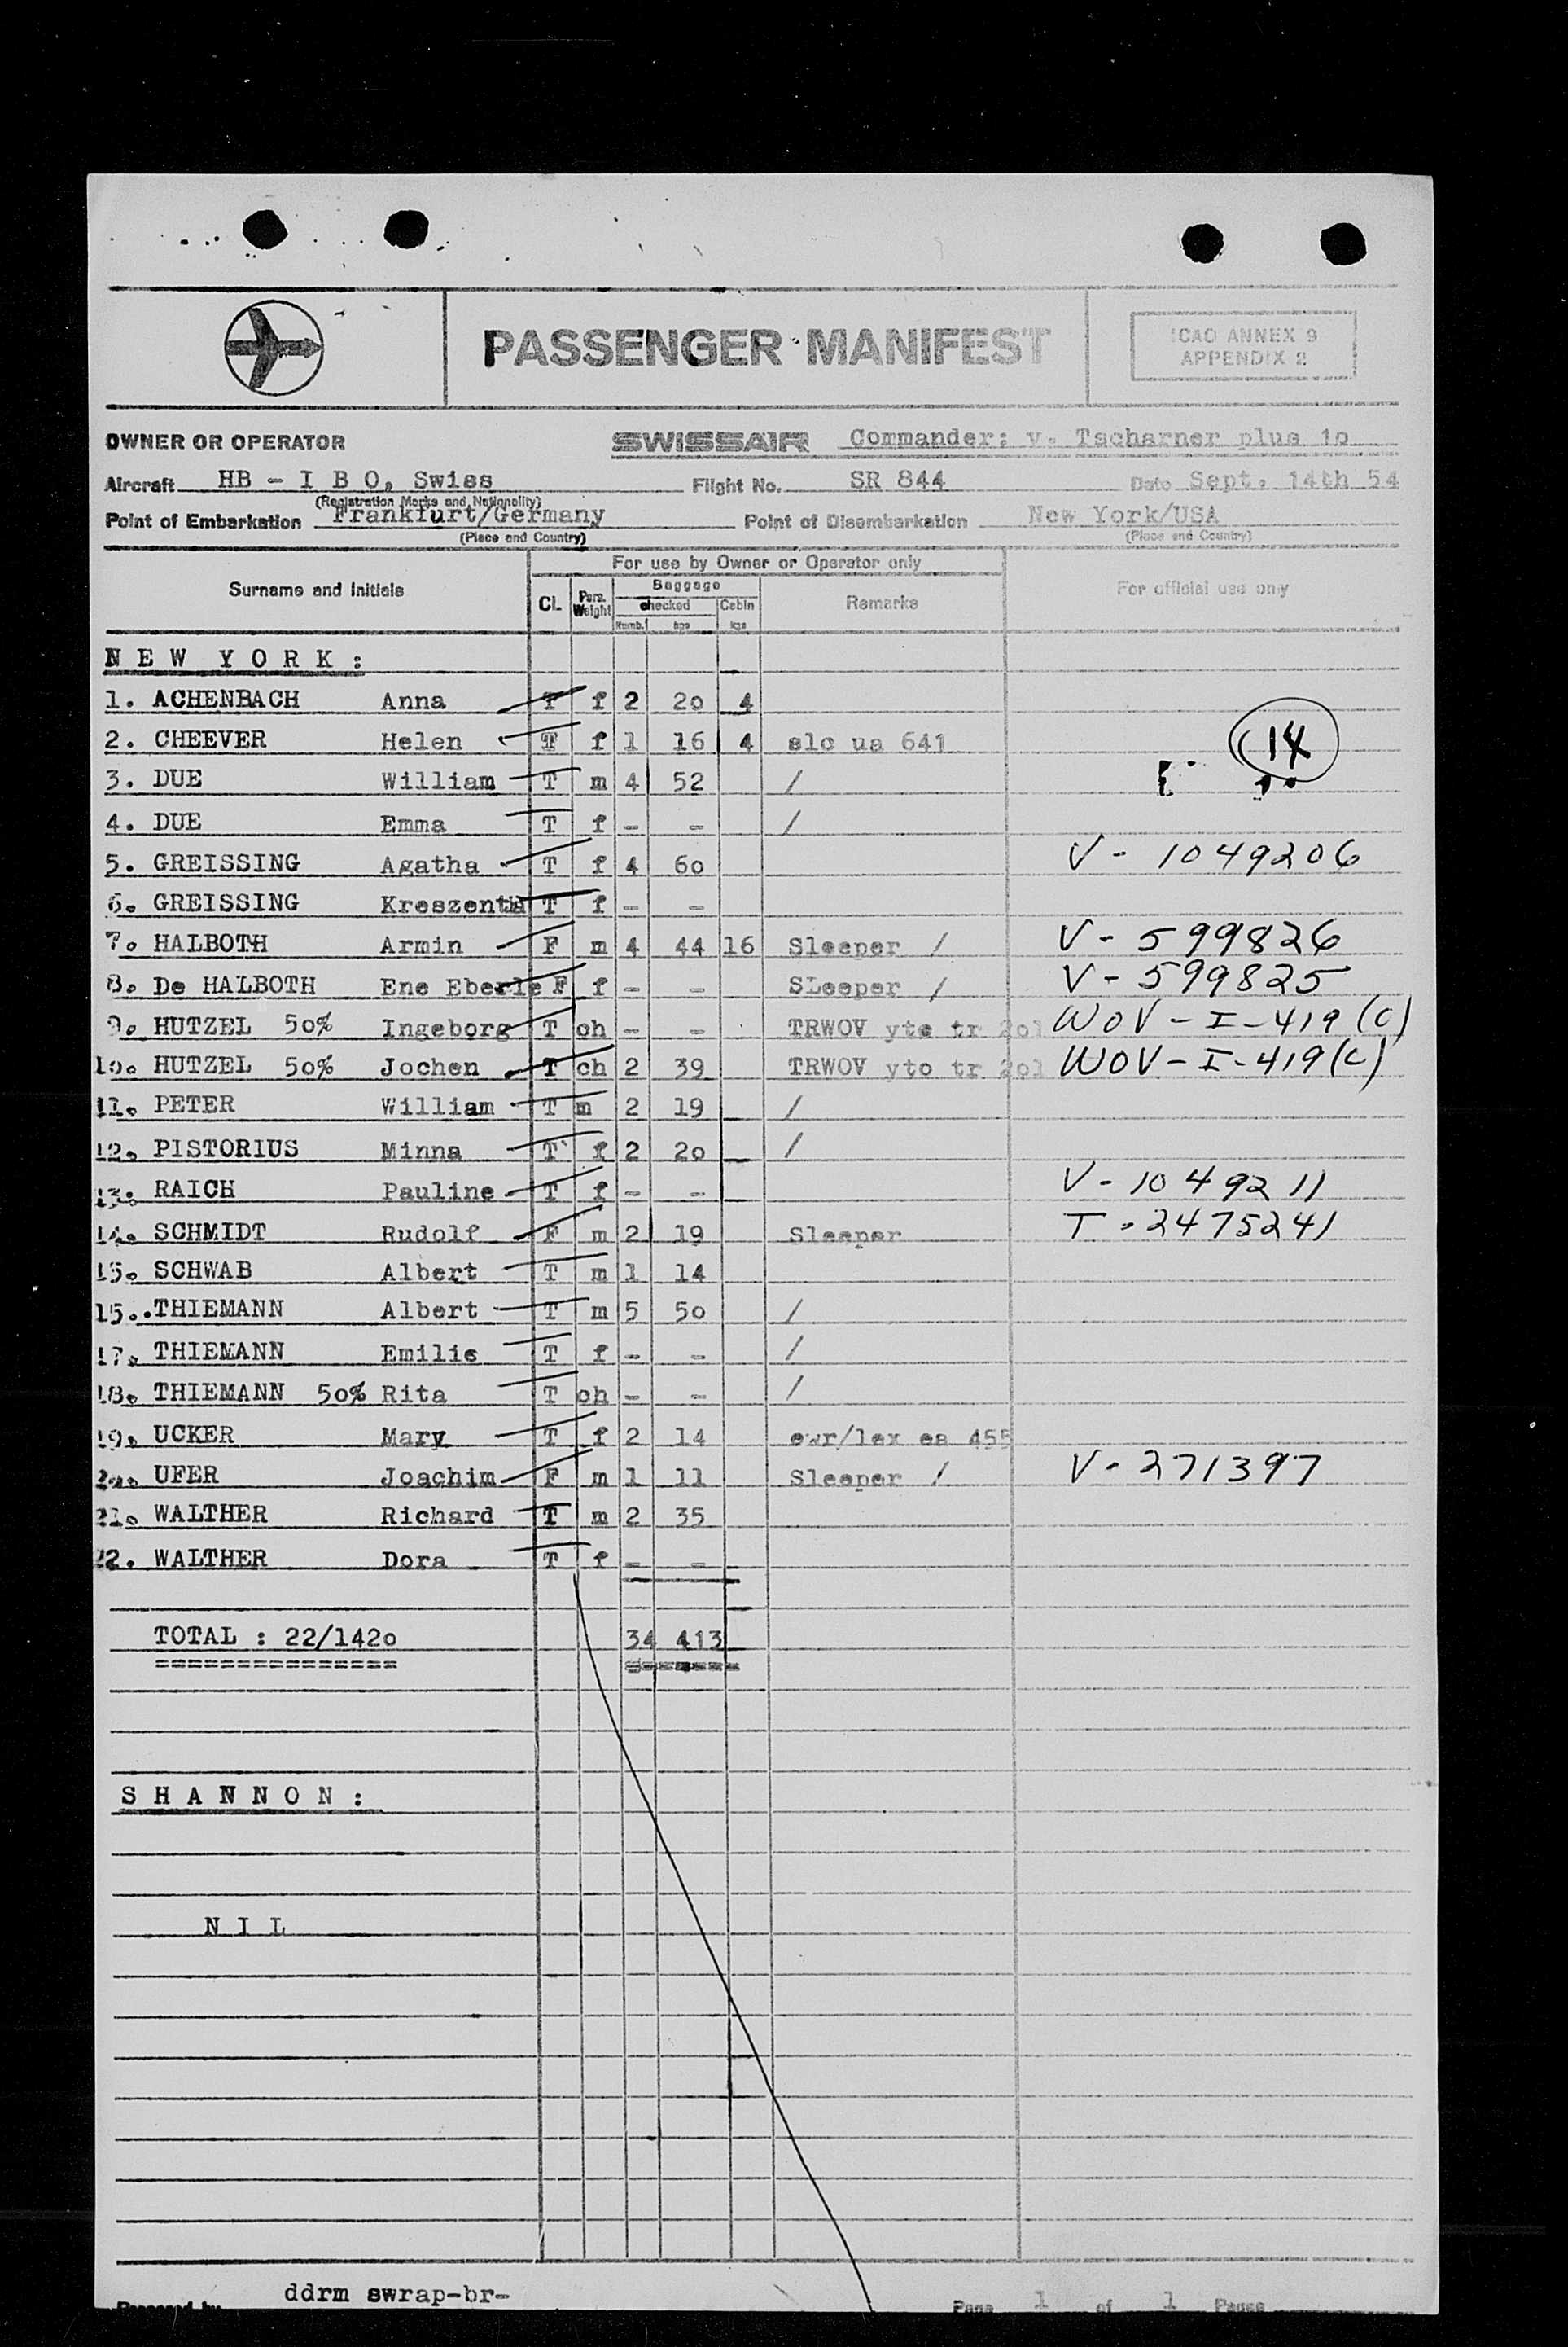 PASSENGER MANIFEST
ICAO ANNEX 9
APPENDIX 2
OWNER OR OPERATOR SWISSAIR Commander: v. Tscharner plus 1o
Aircraft HB - I B O, Swiss Flight No. SR 844 Date Sept. 14th 54
(Registration Marks and Nationality)
Point of Embarkation Frankfurt/Germany Point of Disembarkation New York/USA
(Place and Country) (Place and Country)
For use by Owner or Operator only
Surname and Initials Cl. Pers. Weight Baggage Remarks For official use only
checked Cabin
Numb. kgs kgs
N E W Y O R K :
1. ACHENBACH Anna T f 2 2o 4
2. CHEEVER Helen T f 1 16 4 slc ua 641 14
3. DUE William T m 4 52 /
4. DUE Emma T f - - /
5. GREISSING Agatha T f 4 6o V - 1049206
6. GREISSING Kreszentia T f - -
7. HALBOTH Armin F m 4 44 16 Sleeper / V - 599826
8. De HALBOTH Ene Eberle F f - - SLeeper / V - 599825
9. HUTZEL 50% Ingeborg T ch - - TRWOV yto tr 2o1 WOV - I - 419 (C)
1o. HUTZEL 50% Jochen T ch 2 39 TRWOV yto tr 2o1 WOV - I - 419 (C)
11. PETER William T m 2 19 /
12. PISTORIUS Minna T f 2 2o /
13. RAICH Pauline T f - - V - 1049211
14. SCHMIDT Rudolf F m 2 19 Sleeper T - 2475241
15. SCHWAB Albert T m 1 14
15..THIEMANN Albert T m 5 5o /
17. THIEMANN Emilie T f - - /
18. THIEMANN 50% Rita T ch - - /
19. UCKER Mary T f 2 14 ewr/lex ea 455
2o. UFER Joachim F m 1 11 Sleeper / V - 271397
21. WALTHER Richard T m 2 35
22. WALTHER Dora T f - -
TOTAL : 22/142o 34 413
S H A N N O N :
N I L
ddrm swrap-br-
Prepared by Page 1 of 1 Pages